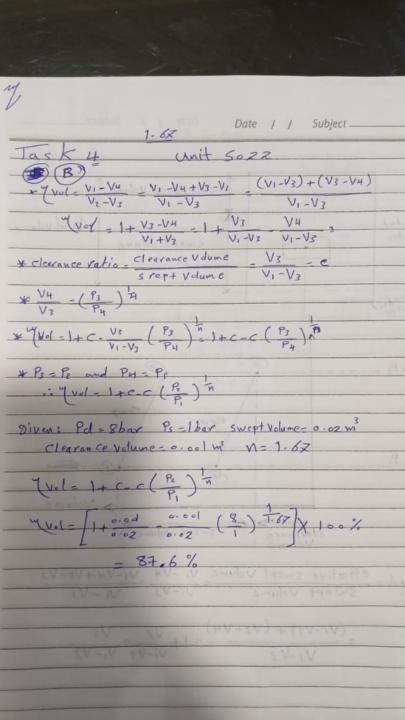 η
1.67
Date / / Subject
Task 4 Unit 5022
B
* ηvol = (V1-V4)/(V1-V3) = (V1-V4+V3-V1)/(V1-V3) = ((V1-V3)+(V3-V4))/(V1-V3)
ηvol = 1+ (V3-V4)/(V1+V3) = 1+ V3/(V1-V3) - V4/(V1-V3)
* clearance ratio = clearance volume/swept volume = V3/(V1-V3) = c
* V4/V3 = (P3/P4)^(1/n)
* ηvol = 1+c- V3/(V1-V3) (P3/P4)^(1/n) = 1+c-c (P3/P4)^(1/n)
* P3=P2 and P4=P1
∴ ηvol = 1+c-c (P2/P1)^(1/n)
Given: Pd = 8bar Ps=1bar swept volume = 0.02 m³
Clearance volume = 0.001 m³ n = 1.67
ηvol = 1+c-c (P2/P1)^(1/n)
ηvol = [1+ 0.0d/0.02 - 0.001/0.02 (8/1)^(1/1.67)] × 100%
= 87.6 %